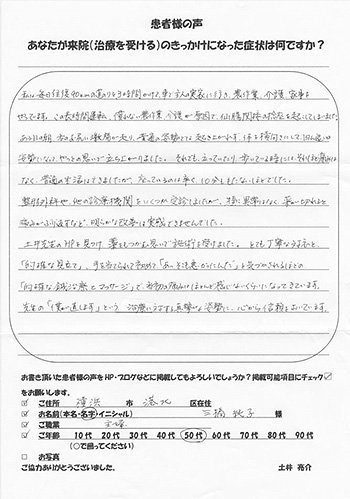 患者様の声
あなたが来院(治療を受ける)のきっかけになった症状は何ですか?
私は毎日往復90kmの道のりを3時間かけて、車で主人の実家に行き、農作業、介護、家事を
やっています。この長時間運転、慣れない農作業、介護が原因で、仙腸関節の捻挫を起こしてしまいました。
ある日の朝、木の
なく、普通の生活はできましたが、座っているのは辛く、10分ももたないほどでした。
整形外科や、他の診療機関をいくつか受診しましたが、特に異常はなく、
痛みがぶり返すなど、明らかな改善は実感できませんでした。
土井先生のHPを見つけ、藁をもつかむ思いで施術を受けました。とても丁寧な
「的確な見立て」、手を当てられて初めて「あっそこ悪かったんだ」と気づかされるほどの
「的確な鍼治療とマッサージ」で、当初の痛みはほとんど感じないくらいになってきています。
先生の「僕が直します」という治療に対する真摯な姿勢に、心から信頼をおいています。
お書き頂いた患者様の声をHP・ブログなどに掲載してもよろしいでしょうか?掲載可能項目にチェック☑
をお願いします。
☑ ご住所 横浜 市 港北 区在住
☑ お名前(本名・名字・イニシャル) 三橋 様
☑ ご職業 主婦
☑ ご年齢 10代 20代 30代 40代 50代 60代 70代 80代 90代
(○で囲ってください)
□ お写真
ご協力ありがとうございました。 土井 亮介